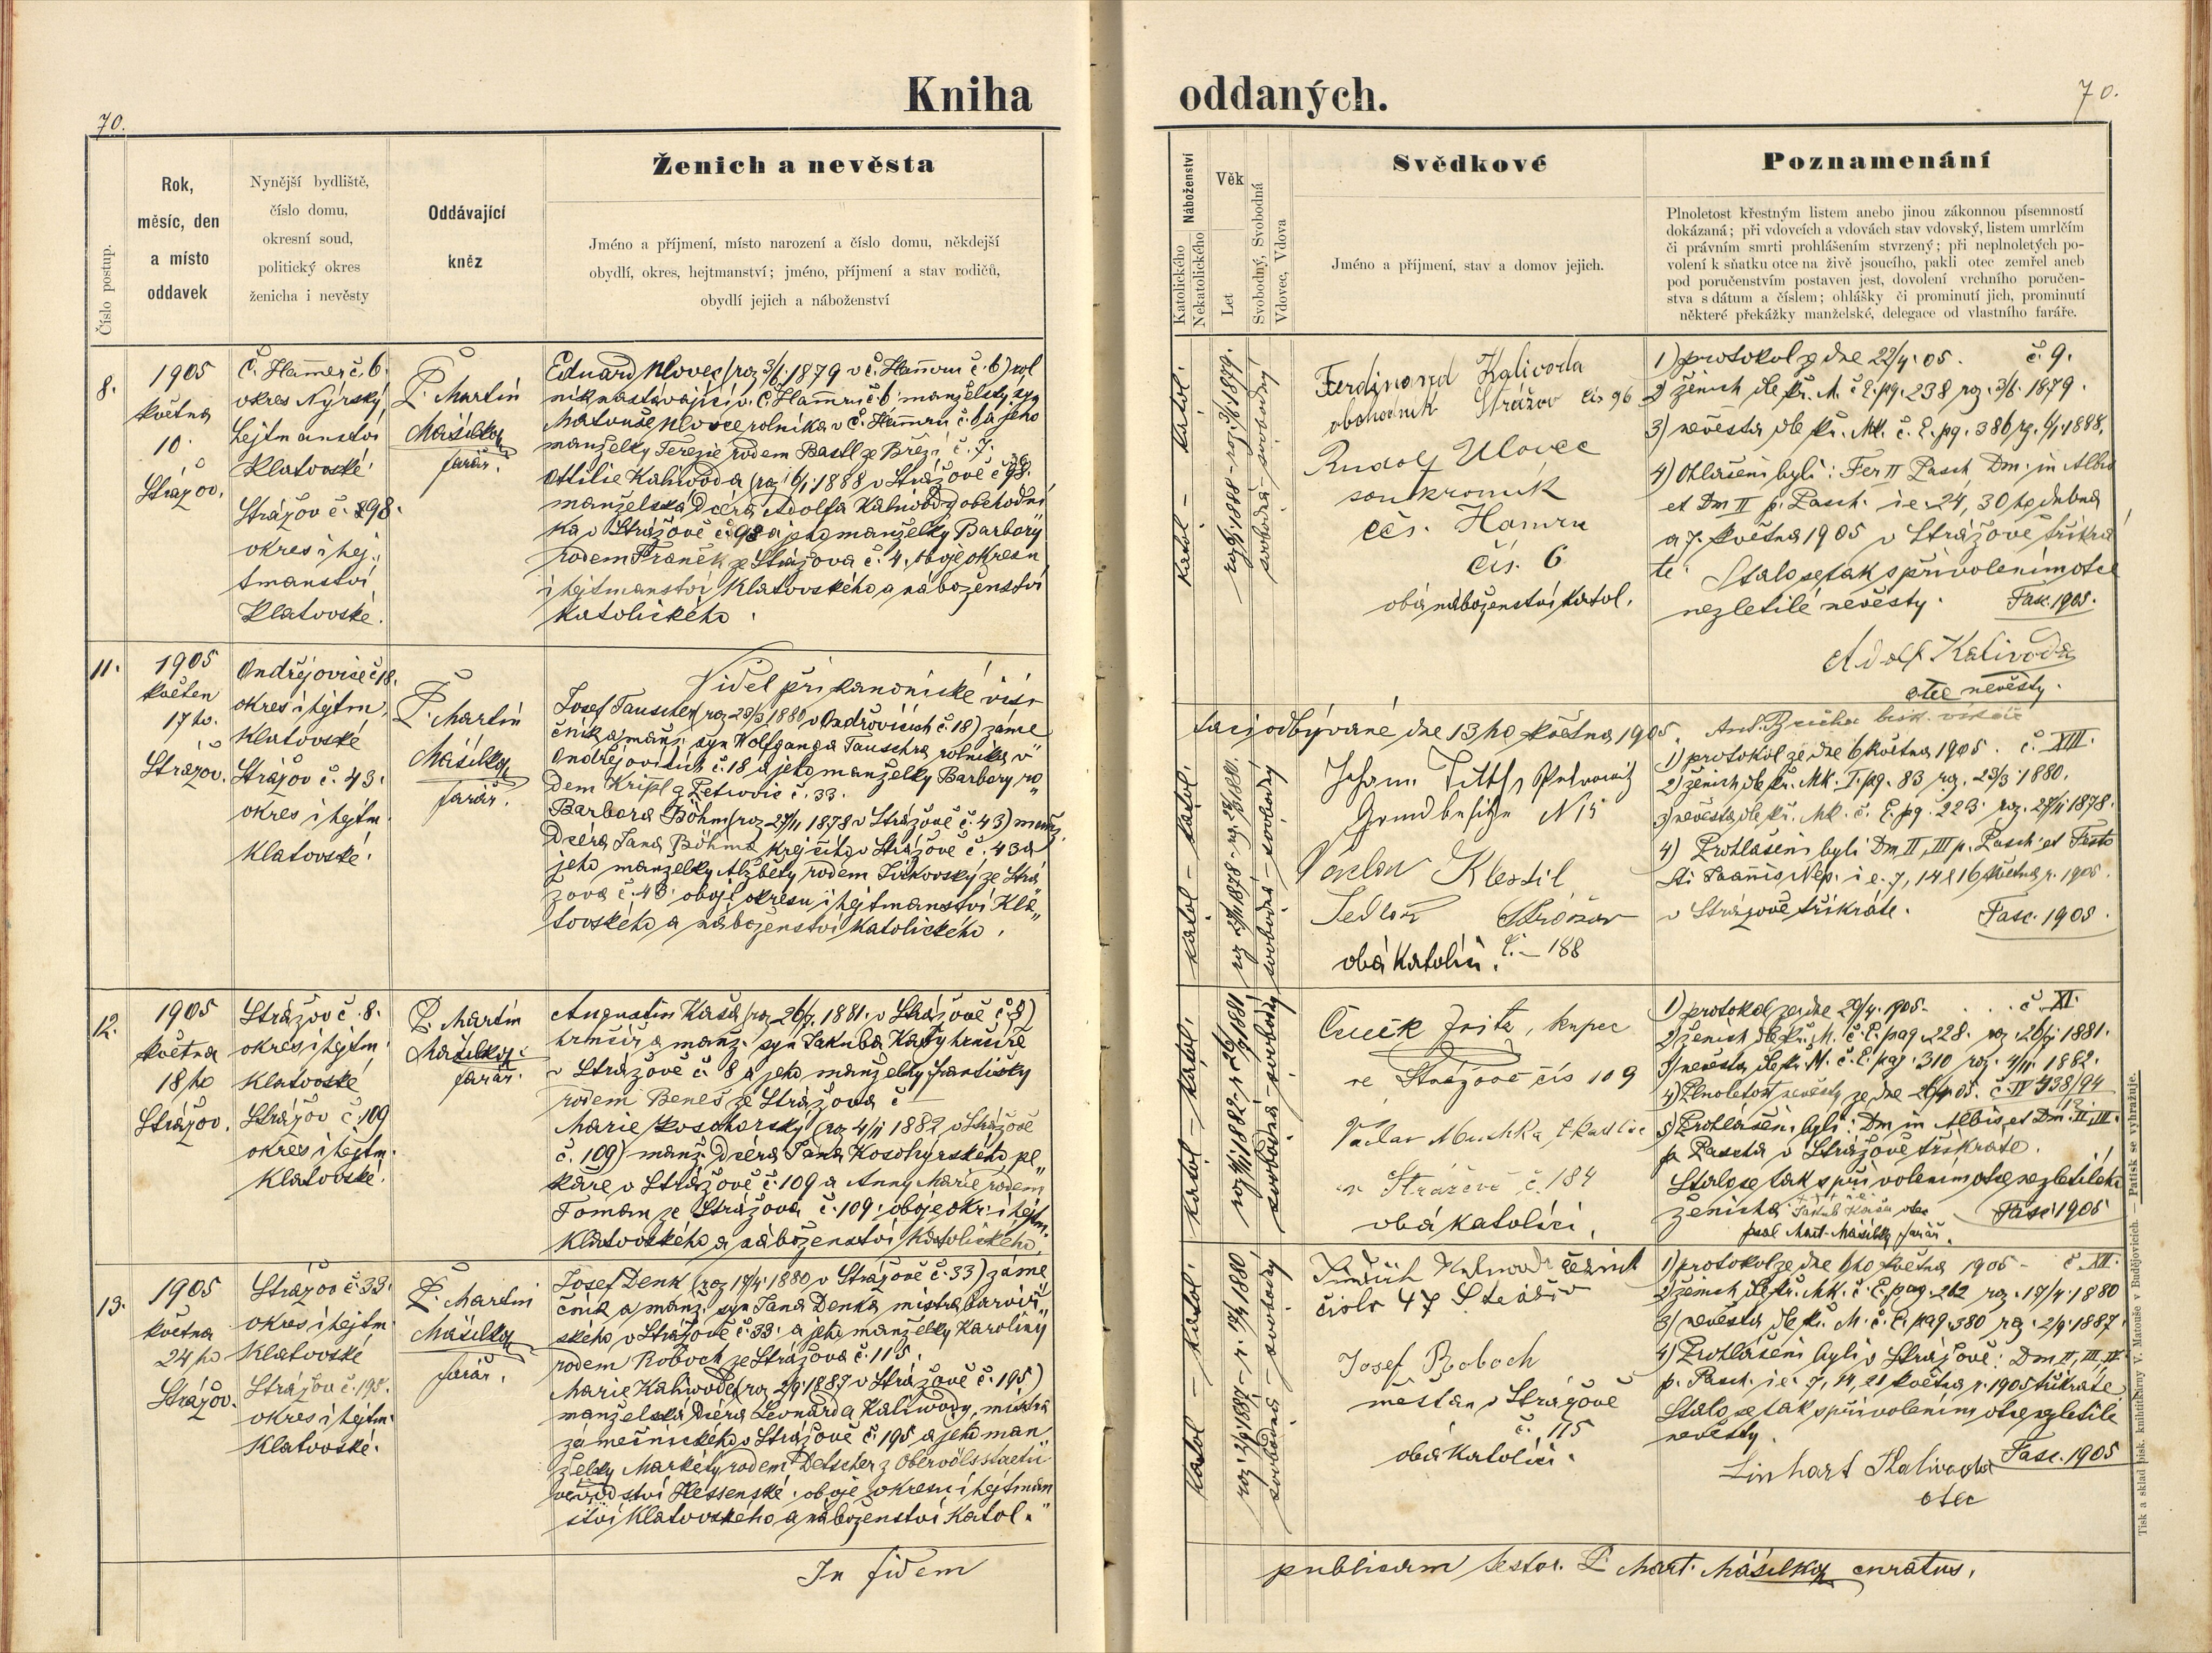 Kniha
oddaných.
70.
70.
Číslo postup.
Rok,
měsíc, den
a místo
oddavek
Nynější bydliště,
číslo domu,
okresní soud,
politický okres
ženicha i nevěsty
Oddávající
kněz
Ženich a nevěsta
Jméno a příjmení, místo narození a číslo domu, někdejší
obydlí, okres, hejtmanství; jméno, příjmení a stav rodičů,
obydlí jejich a náboženství
Náboženství
Katolického
Nekatolického
Věk
Let
Svobodný, Svobodná
Vdovec, Vdova
Svědkové
Jméno a příjmení, stav a domov jejich.
Poznamenání
Plnoletost křestným listem anebo jinou zákonnou písemností
dokázaná; při vdovcích a vdovách stav vdovský, listem umrlčím
či právním smrti prohlášením stvrzený; při neplnoletých po-
volení k sňatku otce na živě jsoucího, pakli otec zemřel aneb
pod poručenstvím postaven jest, dovolení vrchního poručen-
stva s dátum a číslem; ohlášky či prominutí jich, prominutí
některé překážky manželské, delegace od vlastního faráře.
8.
1905
května
10.
Strážov.
Č. Hamer č. 6.
okres Nýrský
hejtmanství
Klatovské.
Strážov č. 98.
okres i hej.
tmanství
Klatovské.
P. Martin
Mašilka
farář.
Eduard Ulovec (roz 3/6 1879 v Č. Hamru č. 6) rol
ník nastávající v Č. Hamru č. 6 manželský syn
Matouše Ulovce rolníka v Č. Hamru č. 6 a jeho
manželky Terezie rodem Bastl z Březí č. 7.
Ottilie Kaliwoda (roz 6/1 1888 v Strážově č 96.
manželská dcera Adolfa Kaliwody obchodní
ka v Strážově č. 98 a jeho manželky Barbory
rodem Franěk ze Strážova č. 4, oboje okresu
i hejtmanství Klatovského a náboženství
katolického.
katol. – katol.
roz 6/1 1888 – roz. 3/6 1879.
svobodná – svobodný
Ferdinand Kalivoda
obchodník Strážov čís 96
Rudolf Ulovec
soukromník
čes. Hamru
čís. 6
oba náboženství katol.
1) protokol ze dne 22/4. 05. č. 9.
2) ženich dle kř. M. č E. pg. 238 roz. 3/6. 1879.
3) nevěsta dle kř. Mk. č. E. pg. 386 rz. 6/1 1888.
4) Ohlášeni byli: Fer II Pasch Dm. in Albis
et Dm II p. Pasch. i e. 24, 30 ho dubna
a 7. května 1905 v Strážově třikrá
te. Stalo se tak s přivolením otce
nezletilé nevěsty. Fasc. 1905.
Adolf Kalivoda
otec nevěsty.
11.
1905
květen
17 ho.
Strážov.
Ondřejovice č 18.
okres i hejtm.
Klatovské
Strážov č. 43.
okres i hejtm
Klatovské.
P. Martin
Mašilka
farář.
Viděl při kanonické visi
taci odbývané dne 13 ho května 1905.
Josef Tauscher (roz 23/3 1880 v Ondřejovicích č. 18) záme
čník a manž. syn Wolfganga Tauschra rolníka v
Ondřejovicích č. 18 a jeho manželky Barbory ro
dem Kripl z Petrovic č. 33.
Barbora Böhm (roz 27/11 1878 v Strážově č. 43) manž.
dcera Jana Böhma krejčího v Strážově č. 43 a
jeho manželky Alžběty rodem Jirkovský ze Strá
žova č. 43. oboje okresu i hejtmanství Kla
tovského a náboženství katolického.
katol – katol.
roz 27/11 1878 – roz. 23/3 1880.
svobodná – svobodný
Johann
Grundbesitzer N 15
Václav Klestil
Sedlář Stražov
č. – 188
oba katolíci.
1) protokol ze dne 6 května 1905. č. XIII.
2) ženich dle kř. Mk. I. pg. 83 roz. 23/3. 1880.
3) nevěsta dle kř. Mk. č. E. pg. 223. roz. 27/11 1878.
4) Prohlášeni byli Dm II, III p. Pasch. et Festo
Sti Joannis Nep. i e. 7, 14 & 16 května r. 1905.
v Strážově třikráte. Fasc. 1905.
12.
1905
května
18 ho
Strážov.
Strážov č. 8.
okres i hejtm.
Klatovské
Strážov č. 109
okres i hejtm.
Klatovské.
P. Martin
Mašilka
farář.
Augustin Kaša (roz 26/7. 1881. v Strážově č. 8)
hrnčíř a manž. syn Jakuba Kaši hrnčíře
v Strážově č. 8 a jeho manželky Františky
rodem Beneš ze Strážova č –
Marie Kosohorský (roz 4/11 1882 v Strážově
č. 109) manž. dcera Jana Kosohyrského pe
kaře v Strážově č. 109 a Anny Marie rodem
Toman ze Strážova č. 109. oboje okr. i hejtm.
Klatovského a náboženství katolického.
katol – katol.
roz 4/11 1882 – r. 26/7 1881
svobodná – svobodný
kupec
ve Strážově čís 109
Václav
v Strážově č. 184
oba katolíci.
1) protokol ze dne 29/4. 1905. č. XI.
2) ženich dle kř. M. č. E. pag. 228. roz. 26/7 1881.
3) nevěsta dle kř. M. č. E. pag. 310 roz. 4/11. 1882.
5) Prohlášeni byli: Dm in Albis, et Dm. II, III.
p. Pascha v Strážově třikráte.
Stalo se tak s přivolením otce nezletilého
ženicha Jakub Kaša otec Fasc 1905
psal Mart. Mašilka farář.
13.
1905
května
24 ho
Strážov.
Strážov č. 33.
okres i hejtm
Klatovské
Strážov č. 195.
okres i hejtm.
Klatovské.
P. Martin
Mašilka
farář.
Josef Denk (roz 17/4. 1880 v Strážově č. 33) záme
čník a manž. syn Jana Denka mistra barvíř
ského v Strážově č. 33. a jeho manželky Karoliny
rodem Roboch ze Strážova č. 115.
Marie Kaliwoda (roz 2/9 1887 v Strážově č. 195)
manželská dcera Leonarda Kaliwody, mistra
zámečnického v Strážově č. 195 a jeho man
želky Markéty rodem Detscher z
vévodství Hessenské. oboje okresu i hejtman
ství Klatovského a náboženství katol.
katol – katol.
roz. 2/9 1887 – r. 17/4 1880
svobodná – svobodný
řezník
číslo 47
Josef Roboch
měšťan v Strážově
č. 115
oba katolíci.
1) protokol ze dne 6 ho května 1905 – č. XII.
2) ženich dle kř. Mk. č. E. pag. 262 roz. 17/4. 1880
3) nevěsta dle kř. M. č. E. pag. 380 roz. 2/9. 1887.
4) Prohlášeni byli v Strážově: Dm II, III, IV
p. Pasch. i e. 7, 14, 21 května r. 1905 třikráte.
Stalo se tak s přivolením otce nezletilé
nevěsty.
Fasc. 1905
Linhart Kalivoda
otec
In fidem
publicam testor. P. Mart. Mašilka curatus.
Tisk a sklad písk. knihtiskárny V. Matouše v Budějovicích. — Patisk se vyhražuje.